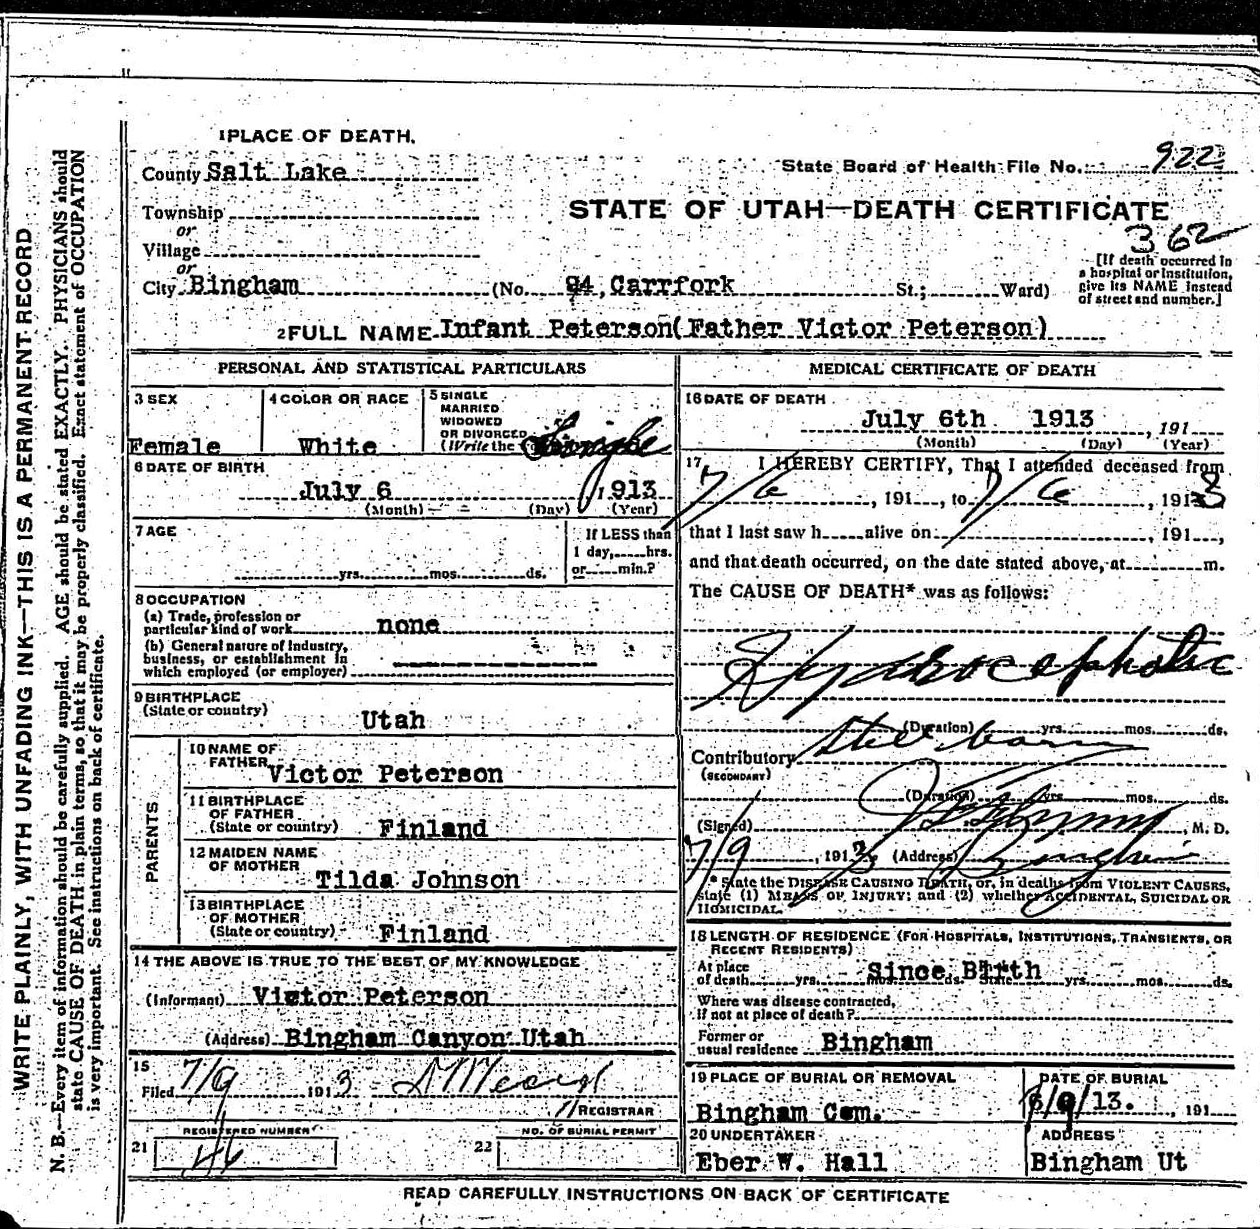 1 PLACE OF DEATH.
County Salt Lake
State Board of Health File No. 922
Township
or
Village
or
City Bingham (No. 94, Carrfork St.; Ward)
STATE OF UTAH—DEATH CERTIFICATE
362
[If death occurred in
a hospital or institution,
give its NAME instead
of street and number.]
2 FULL NAME Infant Peterson(Father Victor Peterson)
PERSONAL AND STATISTICAL PARTICULARS
3 SEX
Female
4 COLOR OR RACE
White
5 SINGLE
MARRIED
WIDOWED
OR DIVORCED
(Write the
Single
6 DATE OF BIRTH
July 6 1913
(Month) (Day) (Year)
7 AGE
yrs. mos. ds.
If LESS than
1 day, hrs.
or min.?
8 OCCUPATION
(a) Trade, profession or
particular kind of work none
(b) General nature of industry,
business, or establishment in
which employed (or employer)
9 BIRTHPLACE
(State or country)
Utah
PARENTS
10 NAME OF
FATHER Victor Peterson
11 BIRTHPLACE
OF FATHER
(State or country) Finland
12 MAIDEN NAME
OF MOTHER
Tilda Johnson
13 BIRTHPLACE
OF MOTHER
(State or country) Finland
14 THE ABOVE IS TRUE TO THE BEST OF MY KNOWLEDGE
(Informant) Victor Peterson
(Address) Bingham Canyon Utah
15
Filed 7/9 1913
REGISTRAR
REGISTERED NUMBER
21 46
NO. OF BURIAL PERMIT
22
MEDICAL CERTIFICATE OF DEATH
16 DATE OF DEATH
July 6th 1913 , 191
(Month) (Day) (Year)
17 I HEREBY CERTIFY, That I attended deceased from
7/6 , 191 , to 7/6 , 1913
that I last saw h alive on , 191 ,
and that death occurred, on the date stated above, at m.
The CAUSE OF DEATH* was as follows:
Hydrocephalic
(Duration) yrs. mos. ds.
Contributory Still born
(SECONDARY)
(Duration) yrs. mos. ds.
(Signed) , M. D.
7/9 , 1913 (Address) Bingham
* State the DISEASE CAUSING DEATH, or, in deaths from VIOLENT CAUSES,
state (1) MEANS OF INJURY; and (2) whether ACCIDENTAL, SUICIDAL OR
HOMICIDAL.
18 LENGTH OF RESIDENCE (FOR HOSPITALS, INSTITUTIONS, TRANSIENTS, OR
RECENT RESIDENTS)
At place
of death yrs. mos. ds. State yrs. mos. ds.
Since Birth
Where was disease contracted,
if not at place of death?
Former or
usual residence Bingham
19 PLACE OF BURIAL OR REMOVAL
Bingham Cem.
DATE OF BURIAL
/9/13. , 191
20 UNDERTAKER
Eber W. Hall
ADDRESS
Bingham Ut
READ CAREFULLY INSTRUCTIONS ON BACK OF CERTIFICATE
WRITE PLAINLY, WITH UNFADING INK—THIS IS A PERMANENT RECORD
N. B.—Every item of information should be carefully supplied. AGE should be stated EXACTLY. PHYSICIANS should
state CAUSE OF DEATH in plain terms, so that it may be properly classified. Exact statement of OCCUPATION
is very important. See instructions on back of certificate.